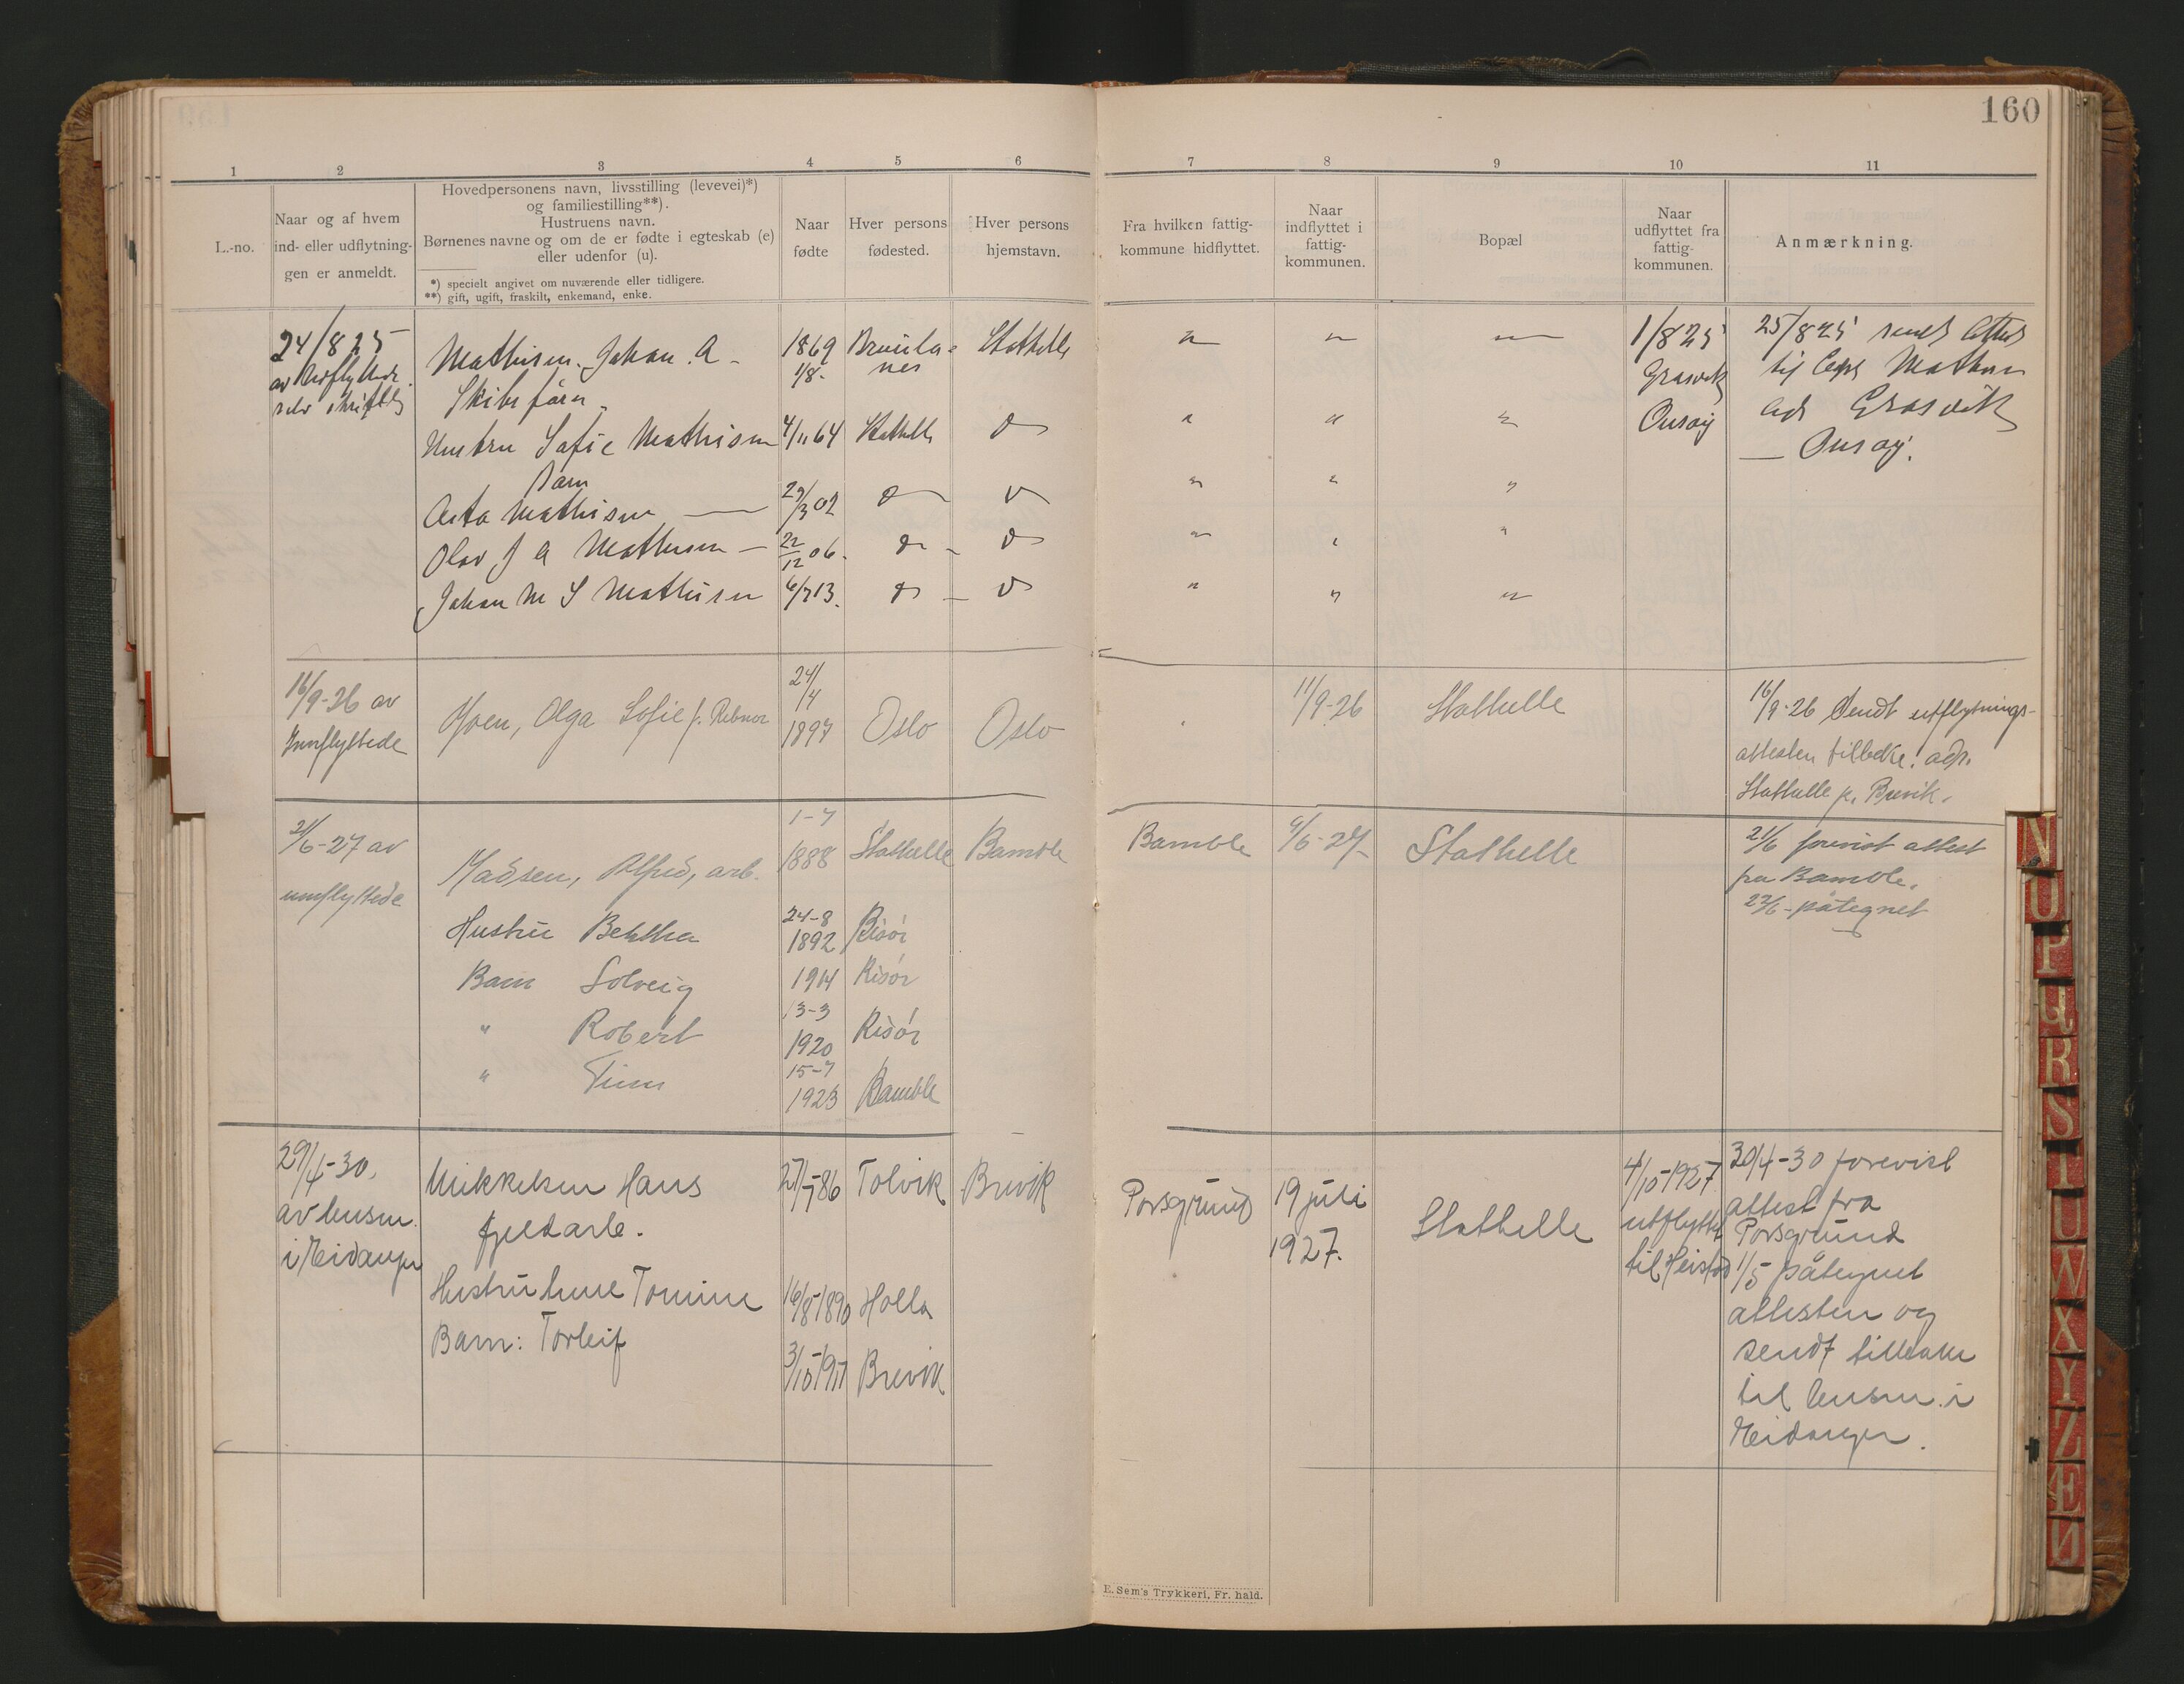 160
1 2 3 4 5 6 7 8 9 10 11
L.-no.
Naar og af hvem
ind- eller udflytnin-
gen er anmeldt.
Hovedpersonens navn, livsstilling (levevei)*)
og familiestilling**).
Hustruens navn.
Børnenes navne og om de er fødte i egteskab (e)
eller udenfor (u).
*) specielt angivet om nuværende eller tidligere.
**) gift, ugift, fraskilt, enkemand, enke.
Naar
fødte
Hver persons
fødested.
Hver persons
hjemstavn.
Fra hvilken fattig-
kommune hidflyttet.
Naar
indflyttet i
fattig-
kommunen.
Bopæl
Naar
udflyttet fra
fattig-
kommunen.
Anmærkning.
24/8 25
av Udflyttede
selv skriftlig
Mathisen, Johan. A -
Skibsfører
1869
1/8-
Brunla-
nes
Stathelle
" " "
1/8 25
Græsvik
Onsøy
25/8 25 sendt Attest
til Mathisen
Græsvik
Onsøy.
Hustru Sofie Mathisen 4/11 64 Stathelle
Barn
Asta Mathisen 29/3 02
Olav J A Mathisen - 22/12 06.
Johan M S Mathisen 6/7 13.
16/9-26 av
Innflyttede
Olga Sofie f.
24/4
1897
Oslo Oslo
11/9-26 Stathelle
16/9-26 Sendt utflytnings-
attesten tilbake. adr.
Stathelle p. Brevik.
21/6-27 av
innflyttede
Madsen, Alfred, arb.
1-7
1888 Stathelle Bamble
Bamble 9/6-27 Stathelle
21/6 forevist attest
fra Bamble.
22/6 - påtegnet
Hustru Berthea 24-8
1892 Risör
Barn Solveig 1914 Risör
" Robert 13-3
1920 Risör
" Finn 15-7
1923 Bamble
29/4-30.
av lensm.
i Eidanger
Mikkelsen Hans
fjeldarb.
27/7-86 Tolvik Brevik
Porsgrund 19 juli
1927.
Stathelle
4/10-1927
utflyttet
til Heistad
30/4-30 forevist
attest fra
Porsgrund
1/5 påtegnet
attesten og
sendt tilbake
til lensm. i
Eidanger.
Hustru Tomine 16/8-1890 Holla
Barn: Torleif 3/10-1917 Brevik
E. Sem's Trykkeri, Fr. hald.
N
O
P
Q
R
S
T
U
W
X
Y
Z
Æ
Ø